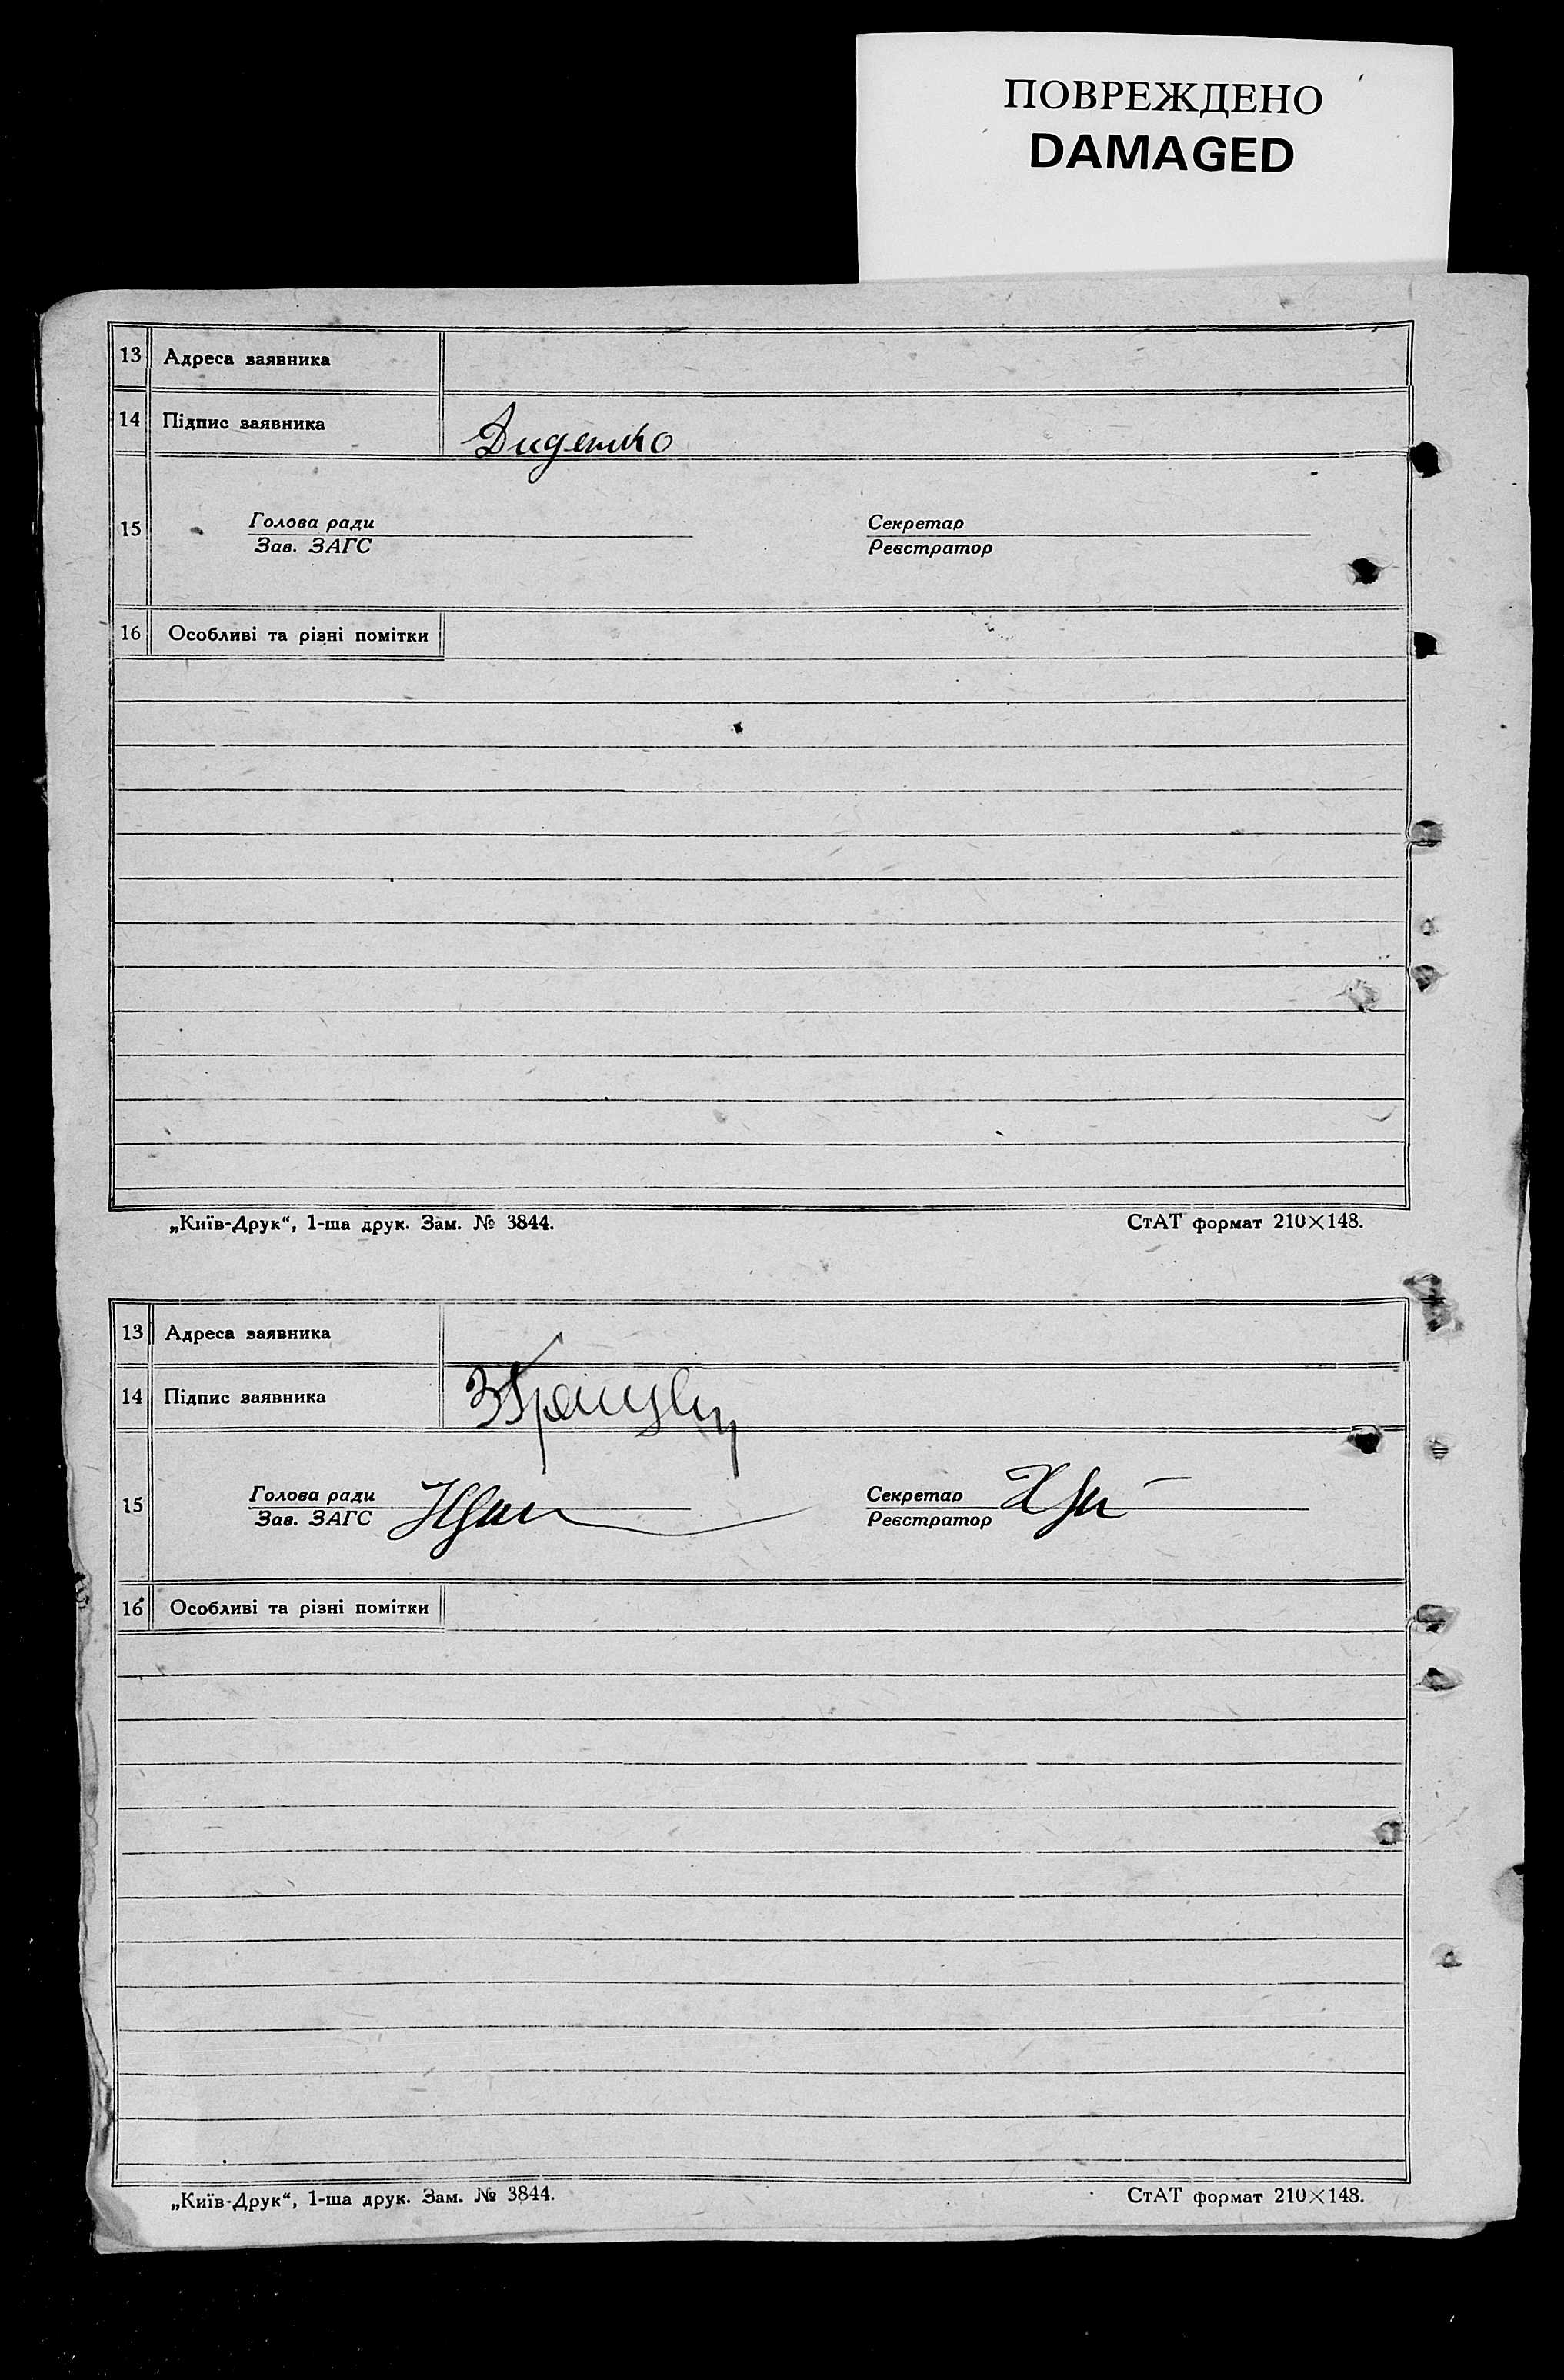 ПОВРЕЖДЕНО
DAMAGED
13 Адреса заявника
14 Підпис заявника Диденко
15 Голова ради Секретар
Зав. ЗАГС Реєстратор
16 Особливі та різні помітки
„Київ-Друк“, 1-ша друк. Зам. № 3844. СтАТ формат 210×148.
13 Адреса заявника
14 Підпис заявника
15 Голова ради Секретар
Зав. ЗАГС Реєстратор
16 Особливі та різні помітки
„Київ-Друк“, 1-ша друк. Зам. № 3844. СтАТ формат 210×148.